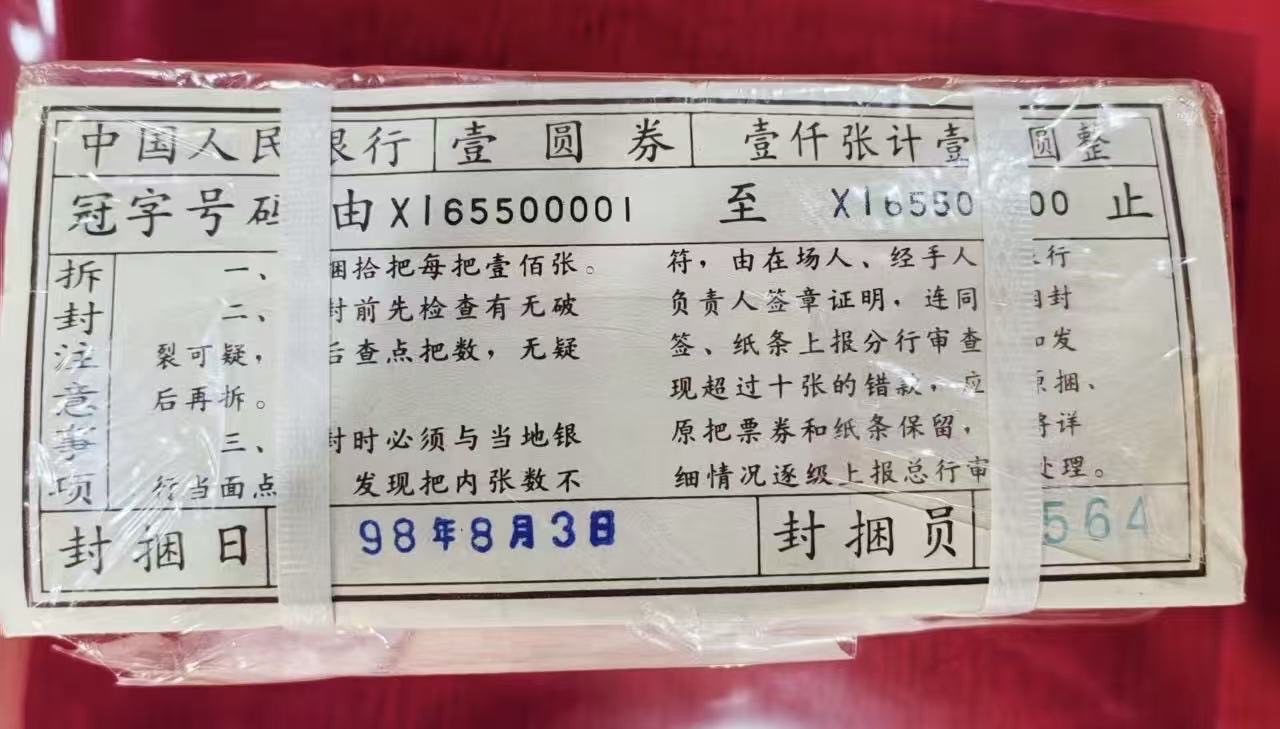 中国人民银行 壹圆券 壹仟张计壹 圆整
冠字号码 由X165500001 至 X16550 00 止
拆封注意事项
一、 捆拾把每把壹佰张。
二、 封前先检查有无破
裂可疑, 后查点把数,无疑
后再拆。
三、 封时必须与当地银
行当面点 发现把内张数不
符,由在场人、经手人 行
负责人签章证明,连同 封
签、纸条上报分行审查 如发
现超过十张的错款,应 原捆、
原把票券和纸条保留, 将详
细情况逐级上报总行审 处理。
封捆日 98年8月3日 封捆员 564